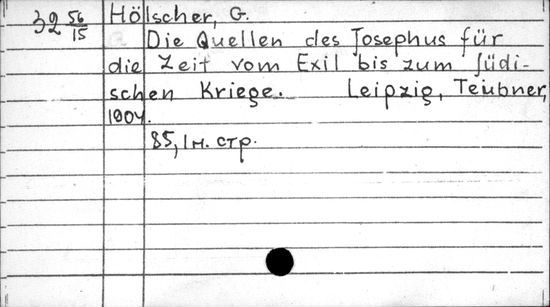 39 56/15 Hölscher, G.
Die Quellen des Josephus für
die Zeit vom Exil bis zum jüdi-
schen Kriege. Leipzig, Teubner,
1904.
85, 1 н. стр.